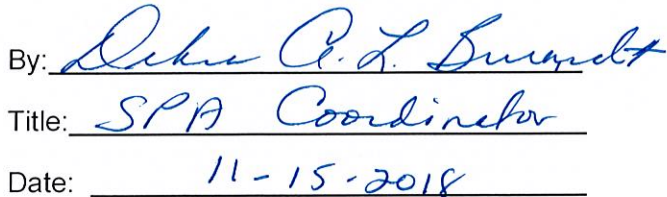 By: Debra A. L. Burandt
Title: SPA Coordinator
Date: 11-15-2018